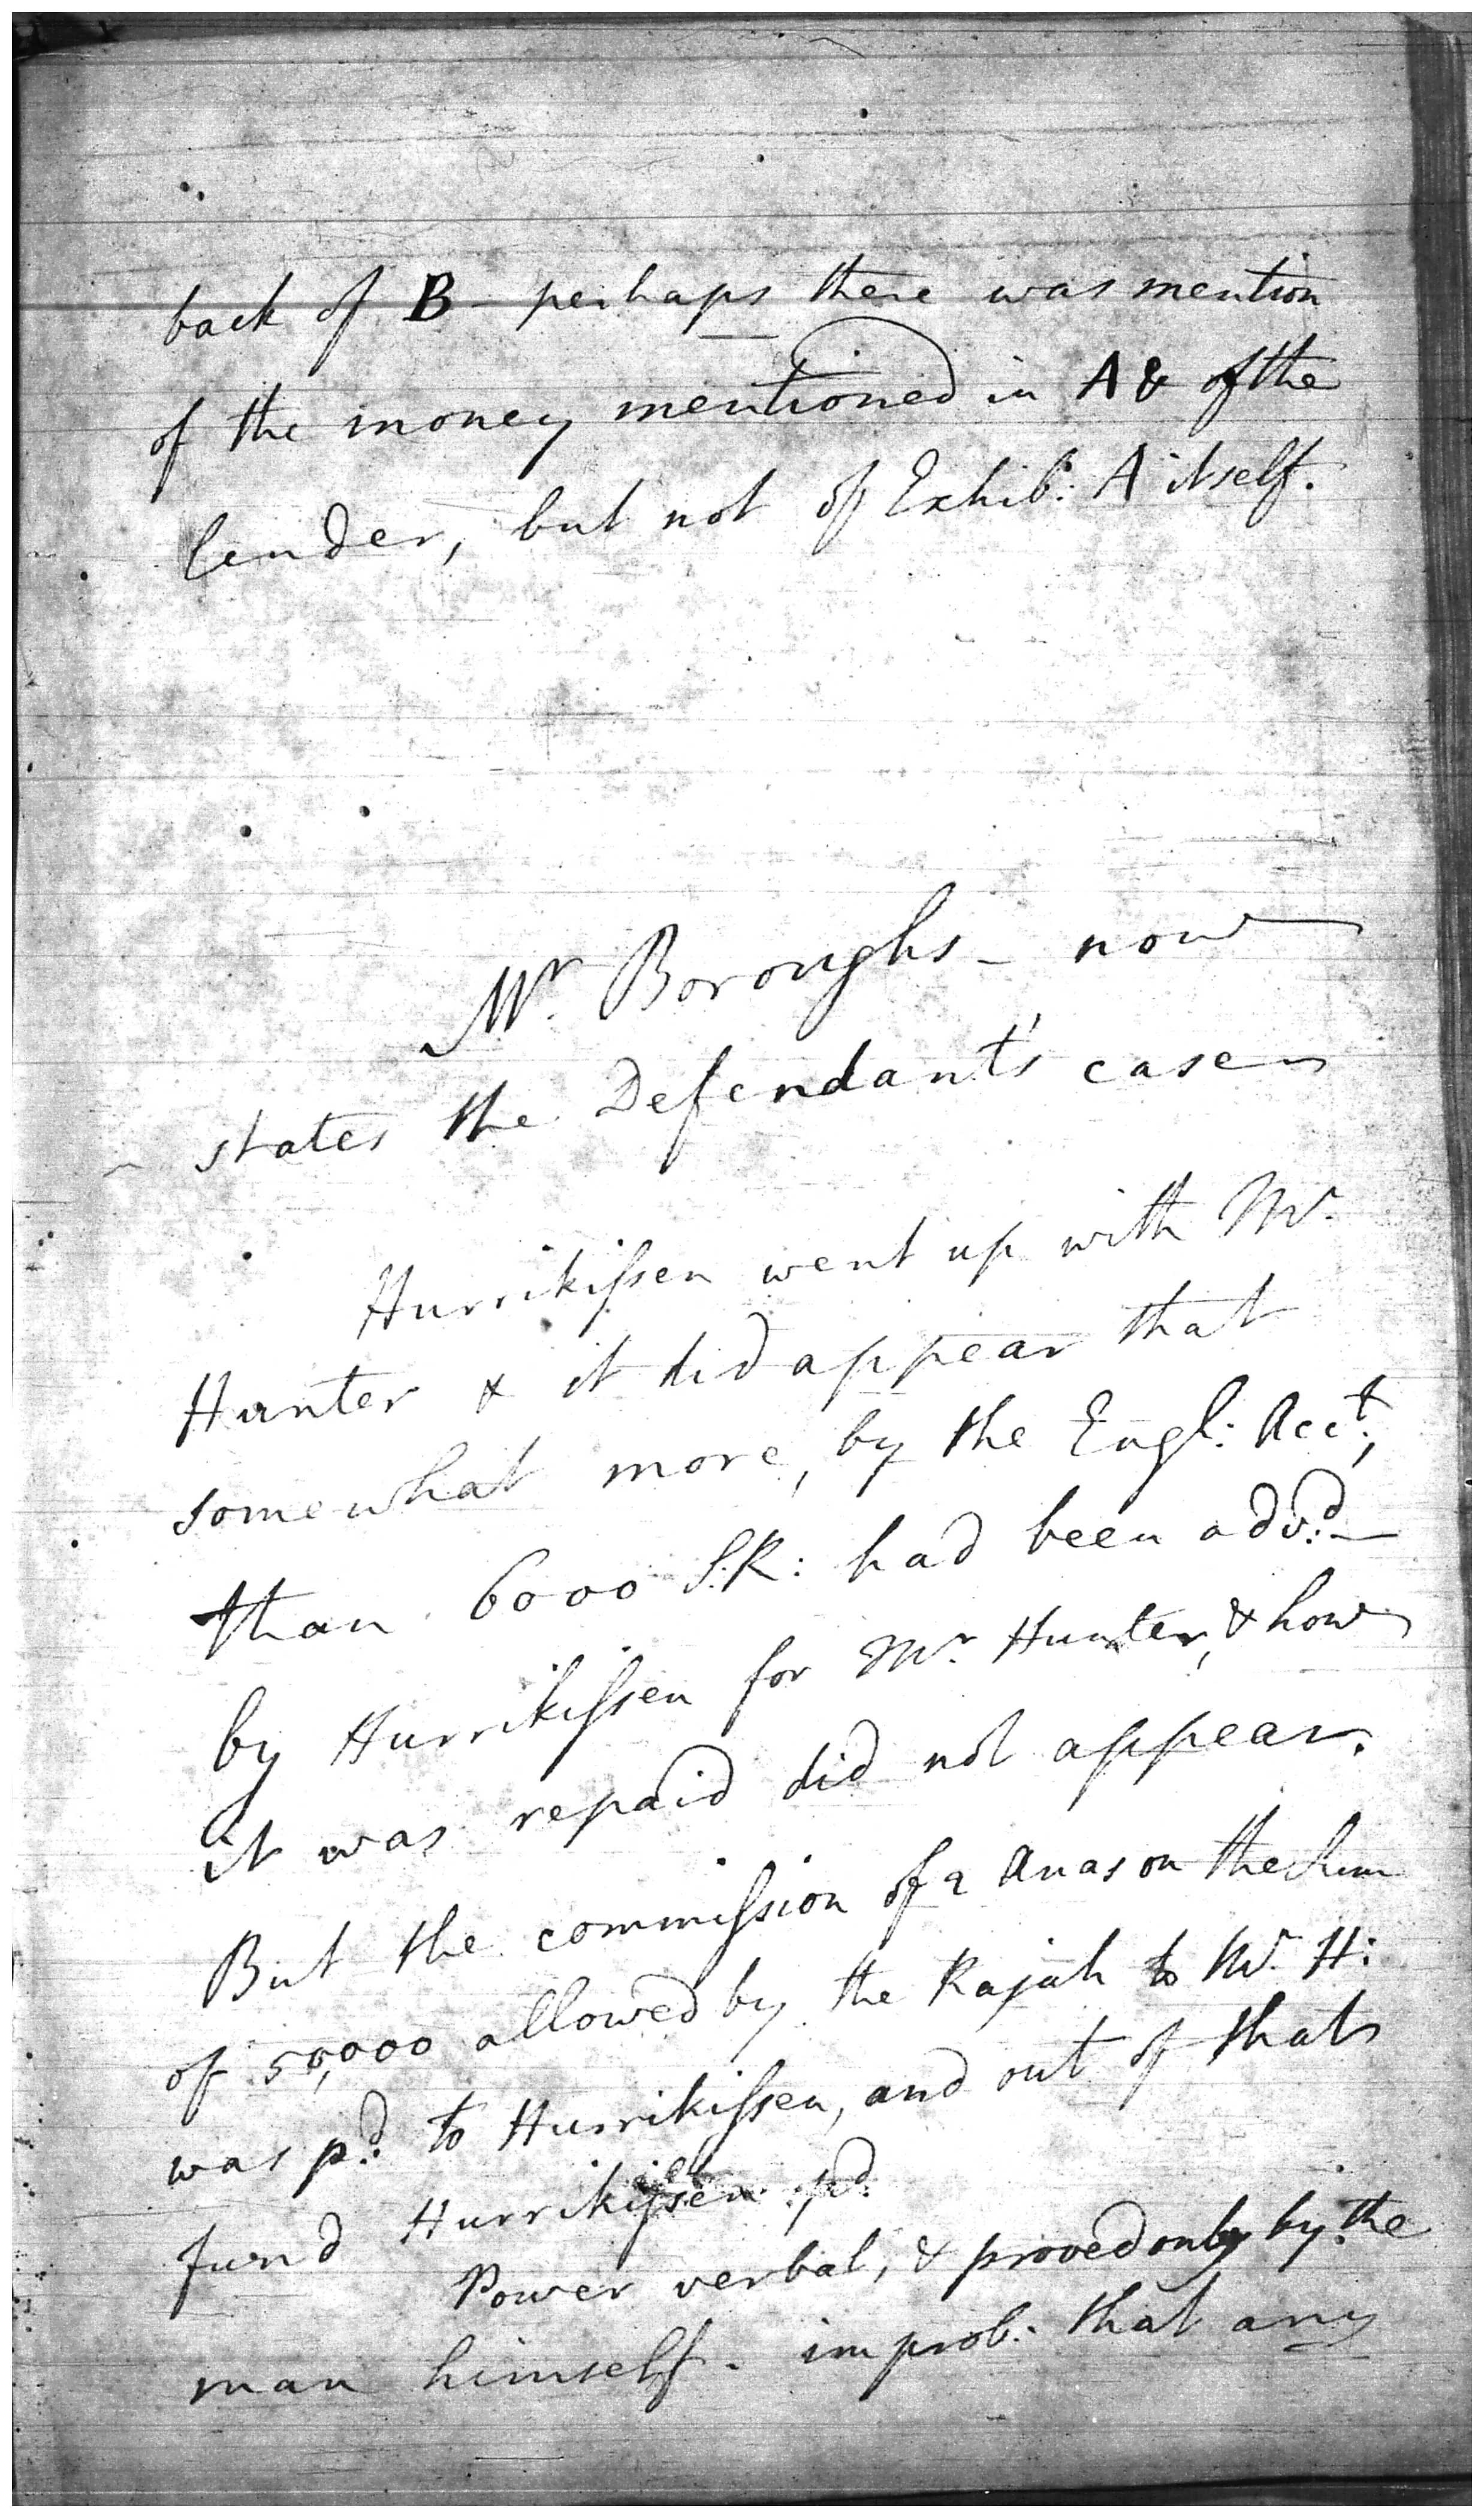 back of B - perhaps there was mention
of the money mentioned in A & of the
lender, but not of Exhib: A itself.
Mr. Boroughs - now
states the Defendant's case
Hurrikiſsen went up with Mr.
Hunter & it did appear that
somewhat more, by the Engl: Acct;
than 6000 S.R: had been advd: -
by Hurrikiſsen for Mr. Hunter, & how
it was repaid did not appear.
But the commiſsion of 2 Anas on the sum
of 50,000 allowed by the Rajah to Mr. H:
was pd: to Hurrikiſsen, and out of that
fund Hurrikiſsen pd:
Power verbal, & proved only by the
man himself - improb: that any